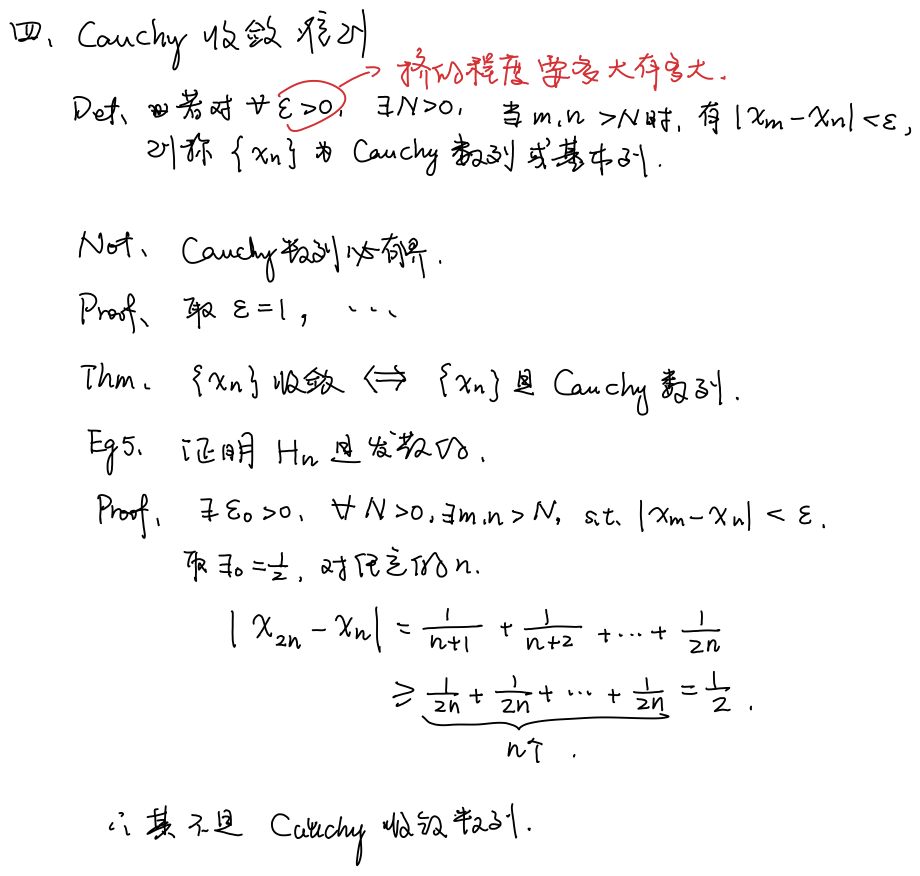 四、Cauchy 收敛准则
挤的程度要多大有多大.
Def、若对 ∀ ε>0, ∃N>0, 当 m,n >N时, 有 |xₘ-xₙ|<ε,
则称 {xₙ} 为 Cauchy 数列或基本列.
Not、Cauchy数列必有界.
Proof、取 ε=1, ...
Thm. {xₙ} 收敛 ⟺ {xₙ} 是 Cauchy 数列.
Eg5. 证明 Hₙ 是发散的.
Proof. ∃ ε₀>0, ∀ N>0, ∃m,n > N, s.t. |xₘ-xₙ| < ε.
取 ∃₀ = 1/2, 对任意的 n.
| x₂ₙ - xₙ| = 1/(n+1) + 1/(n+2) + ... + 1/2n
≥ 1/2n + 1/2n + ... + 1/2n = 1/2 .
n个 .
∴ 其不是 Cauchy 收敛数列.